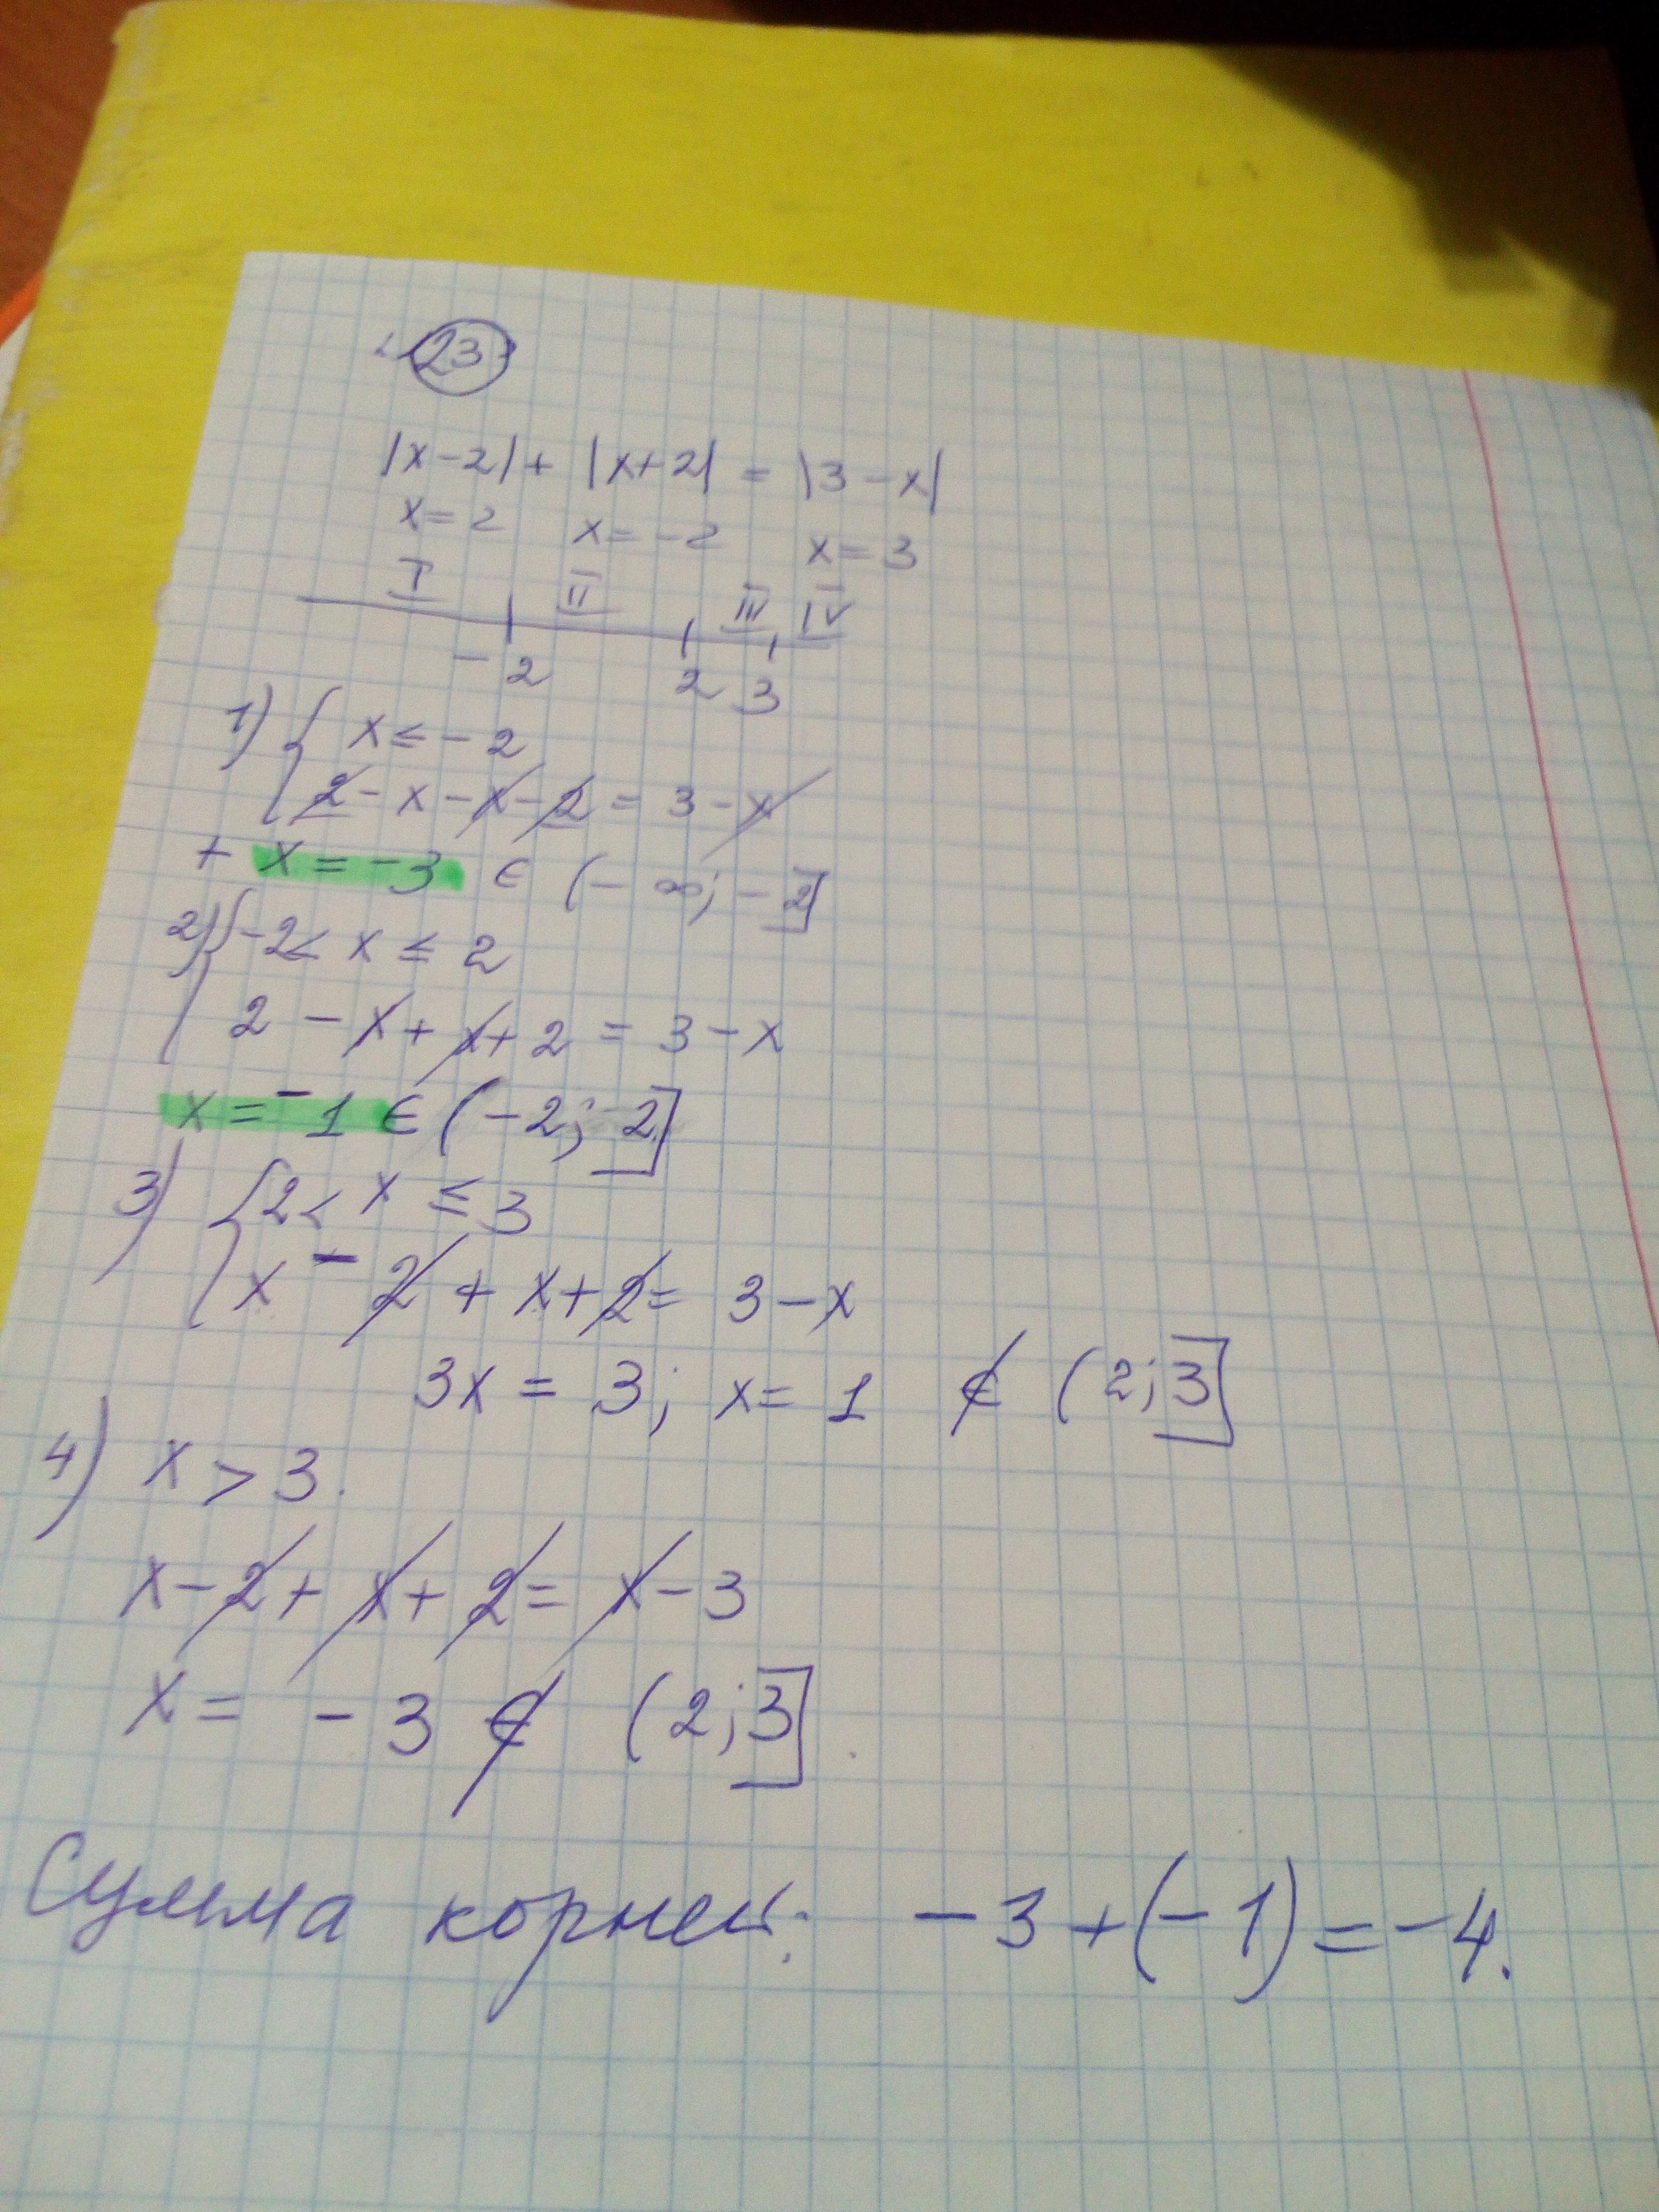 23
|x-2|+ |x+2| = |3-x|
x=2 x=-2 x=3
I II III IV
-2 2 3
1) { x≤-2
2-x-x-2 = 3-x
+ x=-3 ∈ (-∞; -2]
2) { -2< x ≤ 2
2-x+x+2 = 3-x
x=-1 ∈ (-2; 2]
3) { 2< x ≤ 3
x-2+x+2= 3-x
3x = 3; x= 1 ∉ (2;3]
4) x>3.
x-2+x+2= x-3
x= -3 ∉ (2;3].
Сумма корней: -3+(-1)=-4.